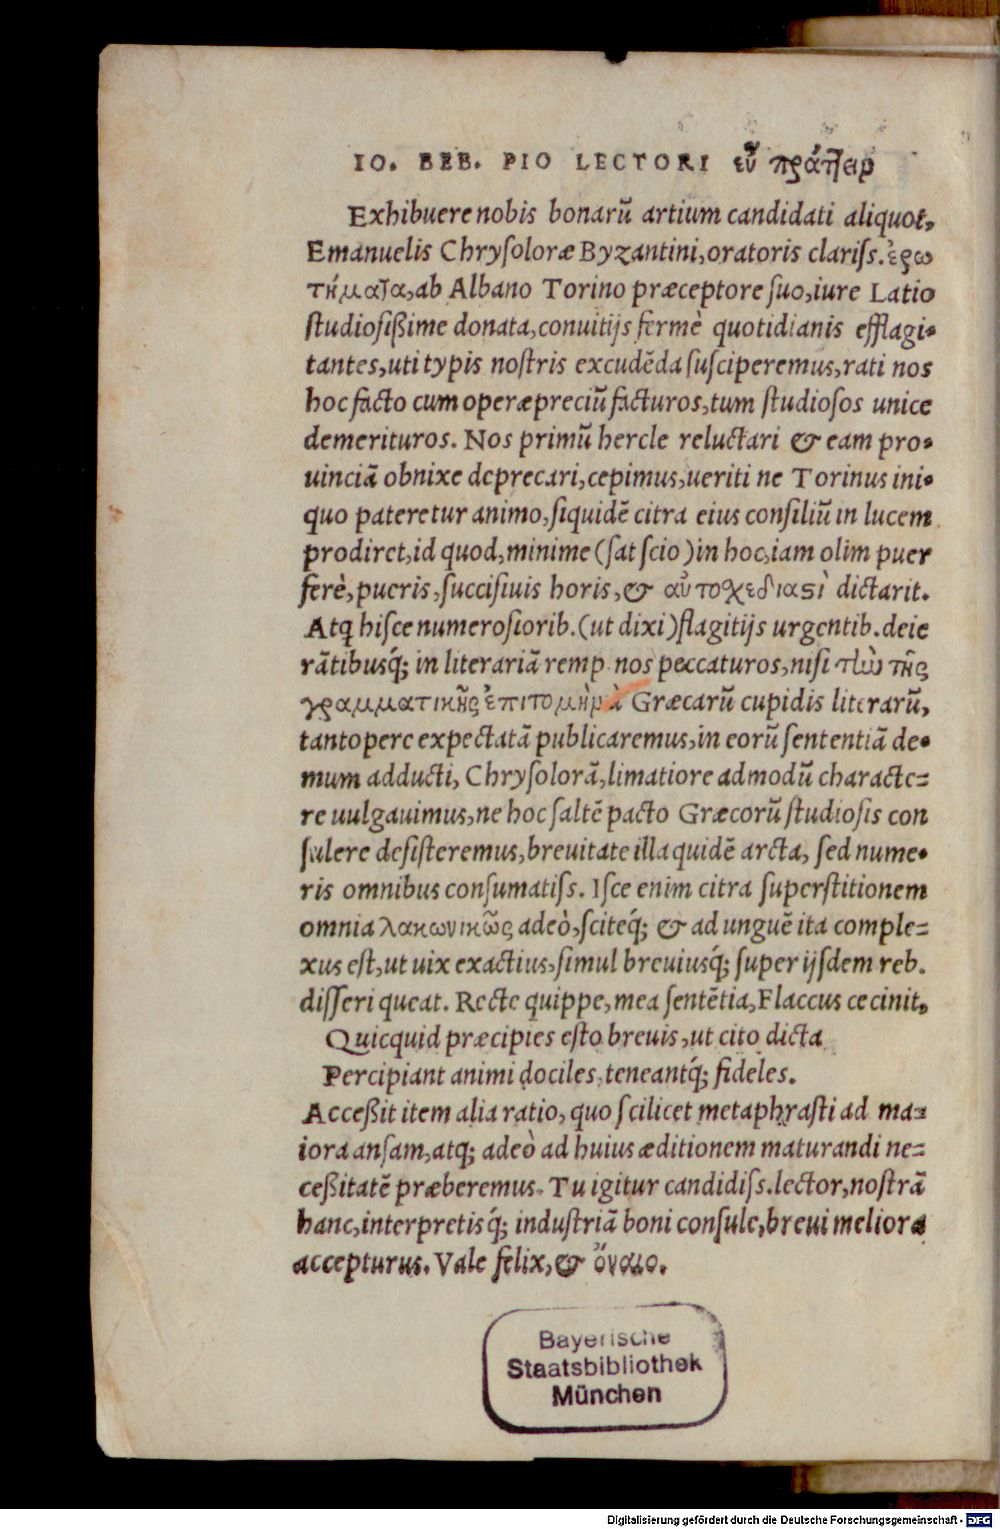 IO. BEB. PIO LECTORI εὖ πράττειν
Exhibuere nobis bonarũ artium candidati aliquot,
Emanuelis Chryſoloræ Byzantini, oratoris clariſs. ἐρω
τήματα, ab Albano Torino præceptore ſuo, iure Latio
ſtudioſißime donata, conuitijs fermè quotidianis efflagi-
tantes, uti typis noſtris excudẽda ſuſciperemus, rati nos
hoc facto cum operæpreciũ facturos, tum ſtudioſos unice
demerituros. Nos primũ hercle reluctari & eam pro-
uinciã obnixe deprecari, cepimus, ueriti ne Torinus ini-
quo pateretur animo, ſiquidẽ citra eius conſiliũ in lucem
prodiret, id quod, minime (ſat ſcio) in hoc, iam olim puer
ferè, pueris, ſucciſiuis horis, & αὐτοσχεδιαστὶ dictarit.
Atq; hiſce numeroſiorib. (ut dixi) flagitijs urgentib. deie
rãtibusq́; in literariã remp. nos peccaturos, niſi τὴν τῆς
γραμματικῆς ἐπιτομὴν à Græcarũ cupidis literarũ,
tantopere expectatã publicaremus, in eorũ ſententiã de-
mum adducti, Chryſolorã, limatiore admodũ characte-
re uulgauimus, ne hoc ſaltẽ pacto Græcorũ ſtudioſis con
ſulere deſiſteremus, breuitate illa quidẽ arcta, ſed nume-
ris omnibus conſumatiſs. Iſce enim citra ſuperſtitionem
omnia λακωνικῶς adeò, ſciteq́; & ad unguẽ ita comple-
xus eſt, ut uix exactius, ſimul breuiusq́; ſuper ijſdem reb.
diſſeri queat. Recte quippe, mea ſentẽtia, Flaccus cecinit,
Quicquid præcipies eſto breuis, ut cito dicta
Percipiant animi dociles, teneantq́; fideles.
Acceßit item alia ratio, quo ſcilicet metaphraſti ad ma-
iora anſam, atq; adeò ad huius æditionem maturandi ne-
ceßitatẽ præberemus. Tu igitur candidiſs. lector, noſtrã
hanc, interpretisq́; induſtriã boni conſule, breui meliora
accepturus. Vale felix, & ὄναιο.
Bayerische
Staatsbibliothek
München
Digitalisierung gefördert durch die Deutsche Forschungsgemeinschaft - DFG